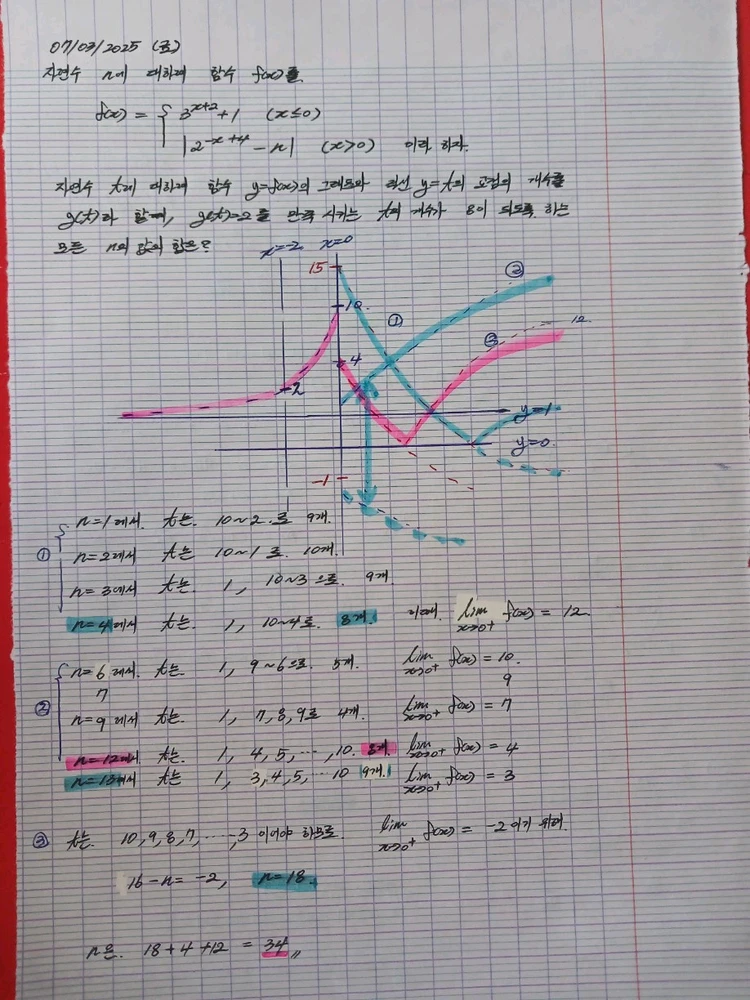 07/03/2025 (금)
자연수 n에 대하여 함수 f(x)를
f(x) = { 3^{x+2}+1 (x≤0)
|2^{-x+4} - n| (x>0) 이라 하자.
자연수 t에 대하여 함수 y=f(x)의 그래프와 직선 y=t의 교점의 개수를
g(t)라 할때, g(t)=2를 만족 시키는 t의 개수가 8이 되도록 하는
모든 n의 값의 합은?
x=-2 x=0
15
②
10
①
12
③
4
2
y=1
y=0
-1
n=1에서 t는 10~2로 9개.
① n=2에서 t는 10~1로 10개.
n=3에서 t는 1, 10~3으로 9개
n=4에서 t는 1, 10~4로 8개. 이때 lim x→0+ f(x) = 12
n=6에서 t는 1, 9~6으로 5개. lim x→0+ f(x) = 10
7 9
② n=9에서 t는 1, 7,8,9로 4개. lim x→0+ f(x) = 7
n=12에서 t는 1, 4,5, ⋯, 10 8개. lim x→0+ f(x) = 4
n=13에서 t는 1, 3,4,5, ⋯ 10 9개. lim x→0+ f(x) = 3
③ t는 10,9,8,7, ⋯,3 이어야 하므로. lim x→0+ f(x) = -2 이기 위해.
16-n= -2, n=18.
n은 18+4+12 = 34〃